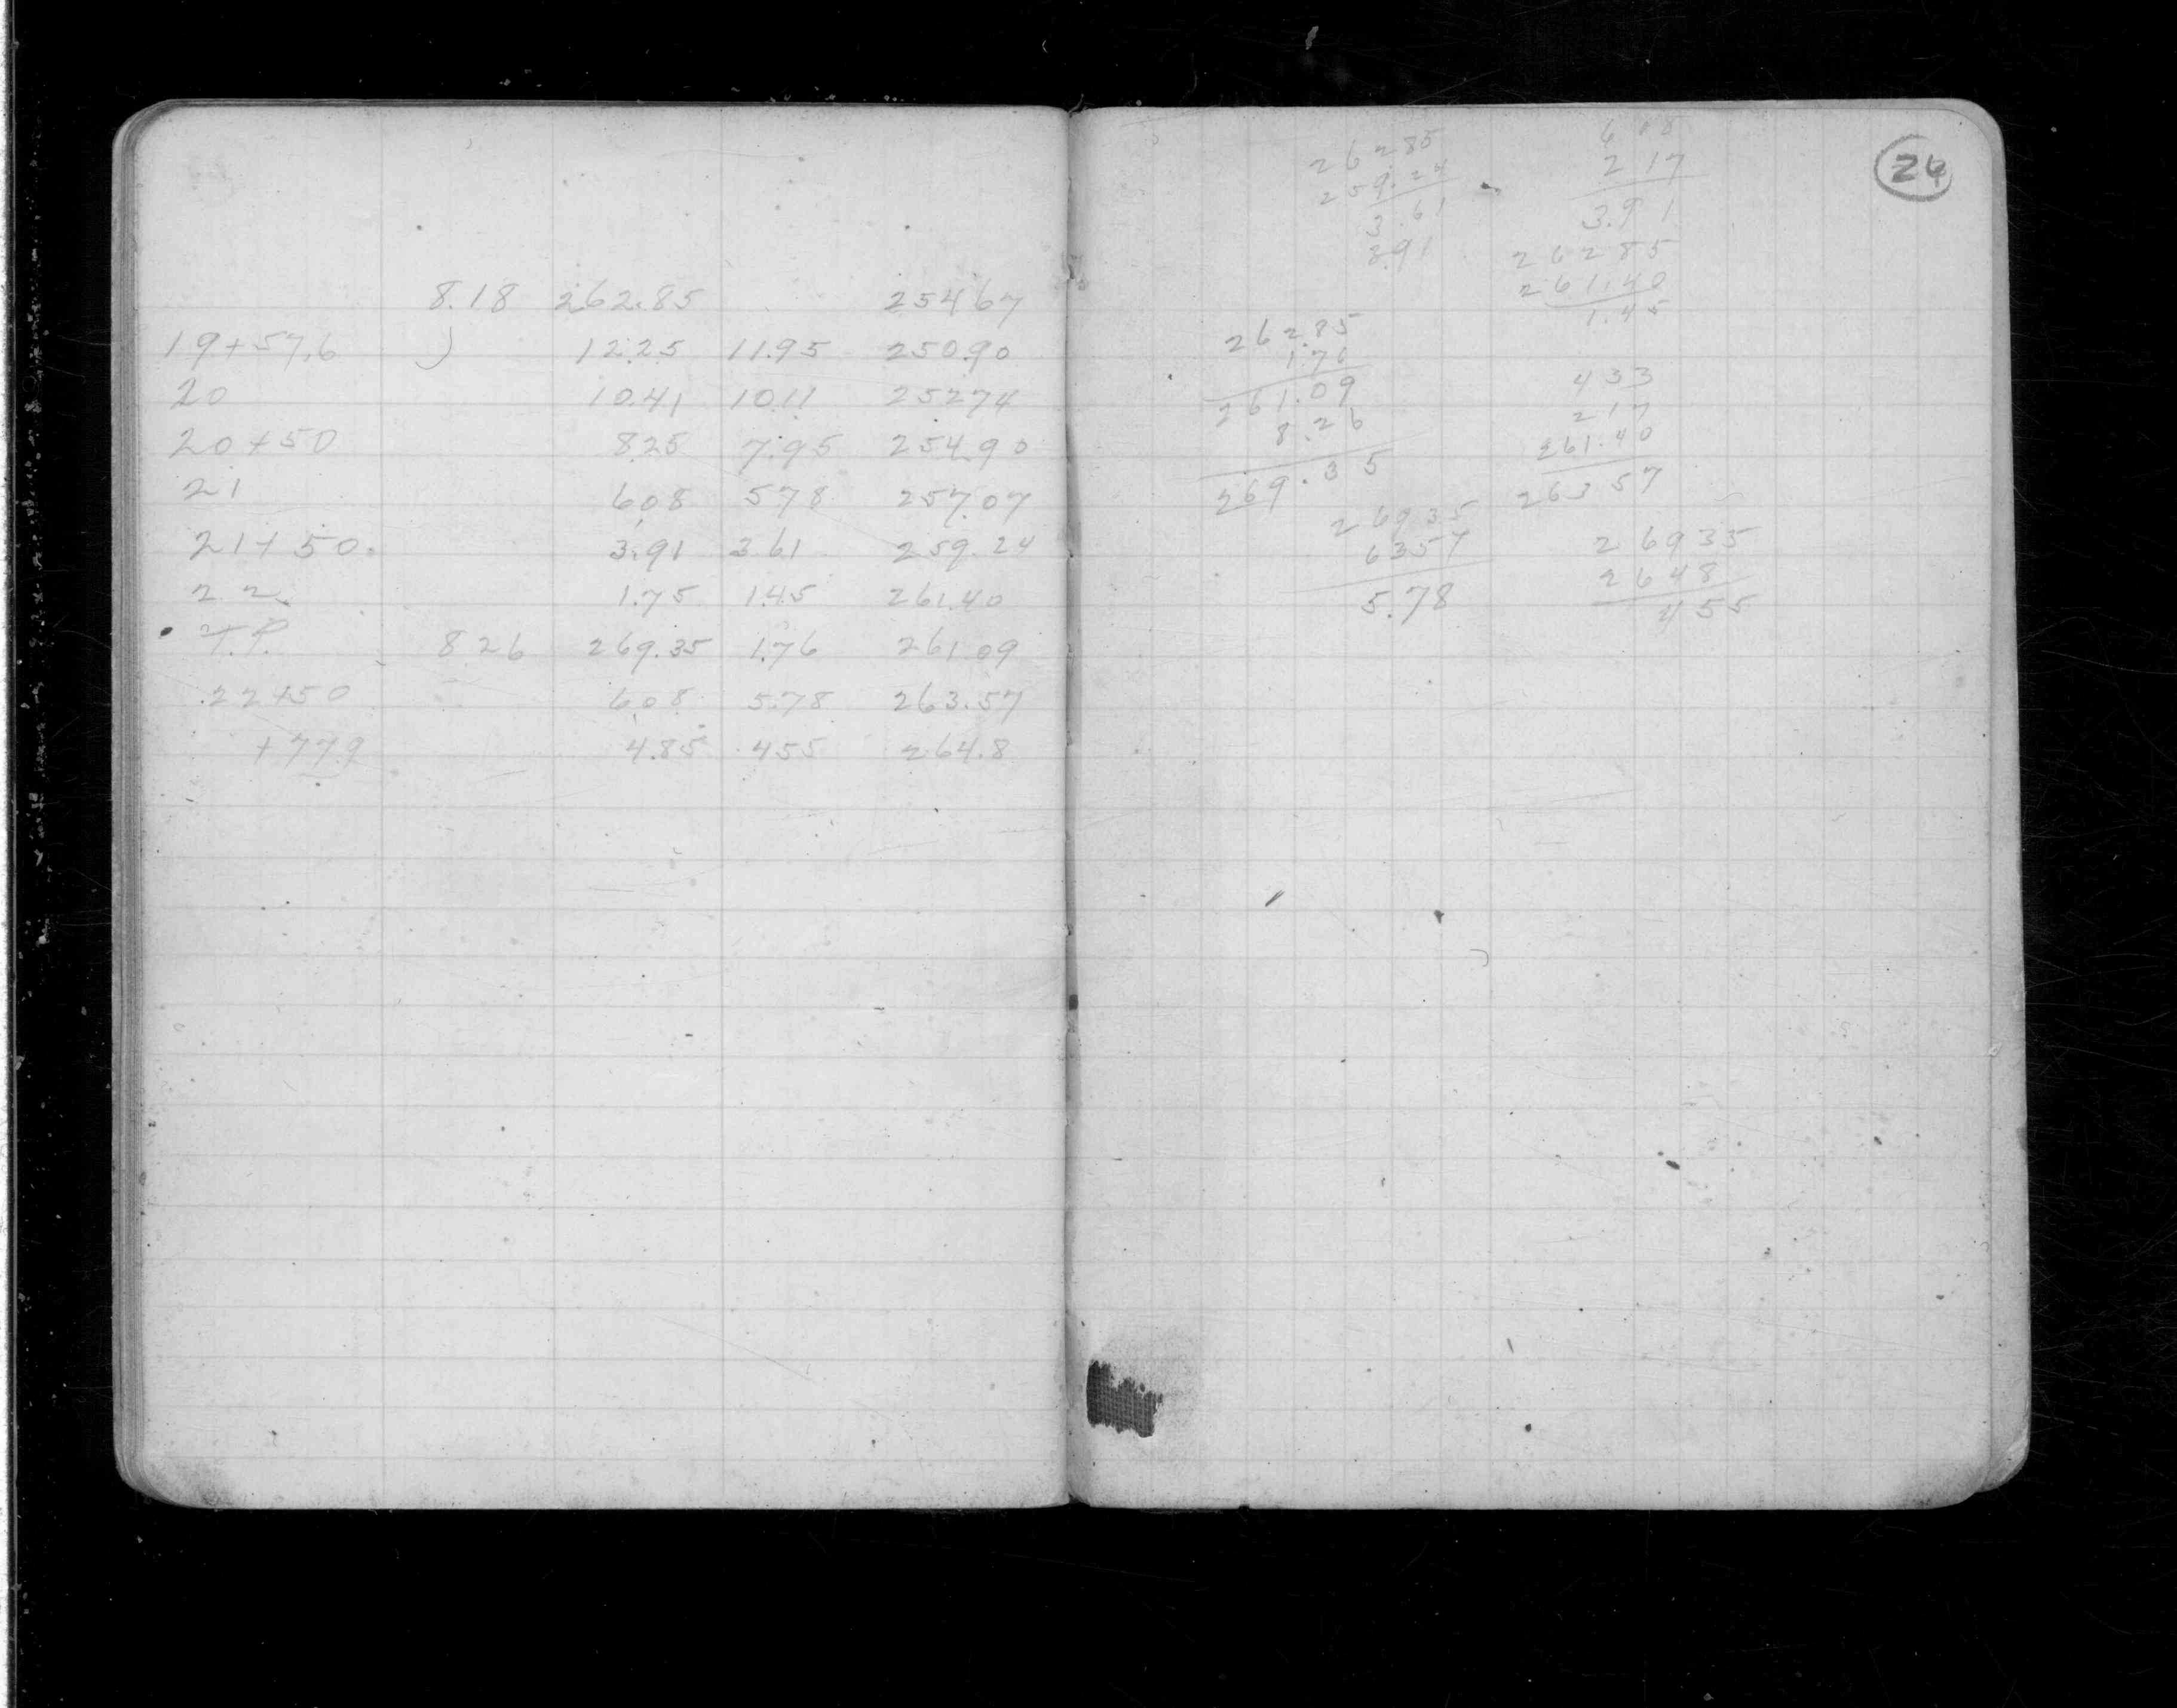 8.18 262.85 25467
19+57.6 12.25 11.95 250.90
20 10.41 10.11 25274
20+50 825 7.95 254.90
21 608 578 257.07
21+50. 3.91 361 259.24
22 1.75 1.45 261.40
T.P. 826 269.35 1.76 261.09
22+50 608 5.78 263.57
+77.9 4.85 455 264.8
24
26285
259.24
3.61
3.91
608
217
3.91
26285
261.40
1.45
262.85
1.76
261.09
8.26
269.35
433
217
261.40
26357
26935
6357
5.78
26935
2648
455